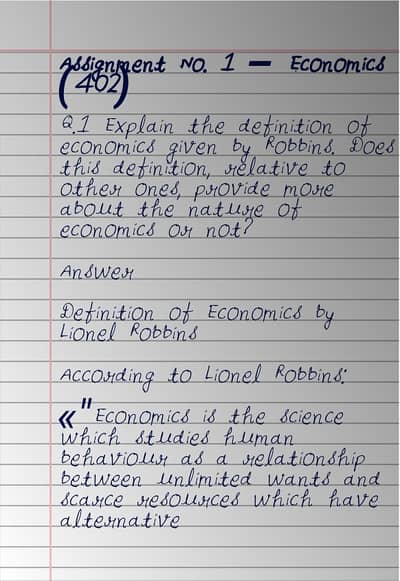 Assignment No. 1 — Economics
(402)
Q.1 Explain the definition of
economics given by Robbins. Does
this definition, relative to
other ones, provide more
about the nature of
economics or not?
Answer
Definition of Economics by
Lionel Robbins
According to Lionel Robbins:
« "Economics is the science
which studies human
behaviour as a relationship
between unlimited wants and
scarce resources which have
alternative